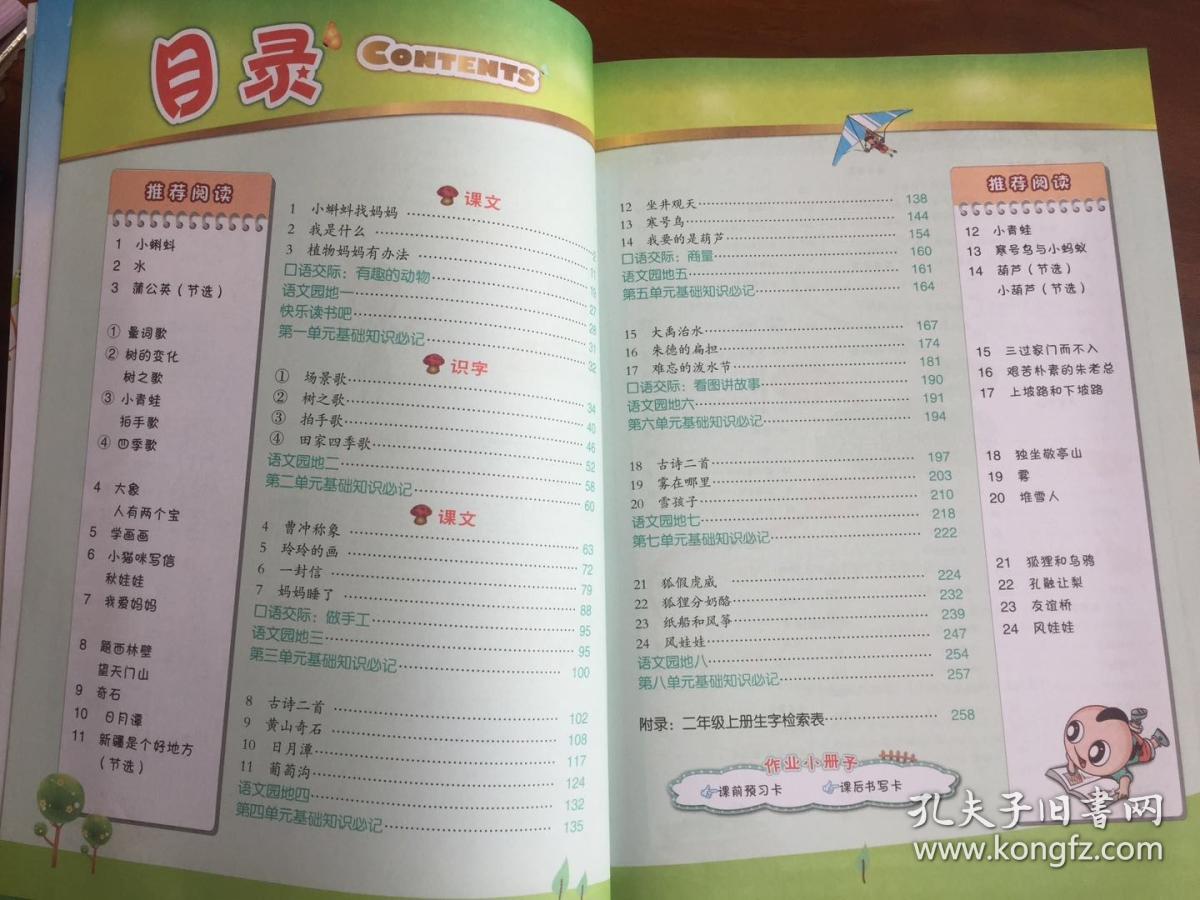 目录 CONTENTS
推荐阅读
1 小蝌蚪
2 水
3 蒲公英(节选)
① 量词歌
② 树的变化
树之歌
③ 小青蛙
拍手歌
④ 四季歌
4 大象
人有两个宝
5 学画画
6 小猫咪写信
秋娃娃
7 我爱妈妈
8 题西林壁
望天门山
9 奇石
10 日月潭
11 新疆是个好地方
(节选)
课文
1 小蝌蚪找妈妈
2 我是什么 2
3 植物妈妈有办法 11
口语交际：有趣的动物 19
语文园地一 27
快乐读书吧 28
第一单元基础知识必记 31
32
识字
① 场景歌 34
② 树之歌 40
③ 拍手歌 46
④ 田家四季歌 52
语文园地二 58
第二单元基础知识必记 60
课文
4 曹冲称象 63
5 玲玲的画 72
6 一封信 79
7 妈妈睡了 88
口语交际：做手工 95
语文园地三 95
第三单元基础知识必记 100
8 古诗二首 102
9 黄山奇石 108
10 日月潭 117
11 葡萄沟 124
语文园地四 132
第四单元基础知识必记 135
12 坐井观天 138
13 寒号鸟 144
14 我要的是葫芦 154
口语交际：商量 160
语文园地五 161
第五单元基础知识必记 164
15 大禹治水 167
16 朱德的扁担 174
17 难忘的泼水节 181
口语交际：看图讲故事 190
语文园地六 191
第六单元基础知识必记 194
18 古诗二首 197
19 雾在哪里 203
20 雪孩子 210
语文园地七 218
第七单元基础知识必记 222
21 狐假虎威 224
22 狐狸分奶酪 232
23 纸船和风筝 239
24 风娃娃 247
语文园地八 254
第八单元基础知识必记 257
附录：二年级上册生字检索表 258
作业小册子
课前预习卡 课后书写卡
推荐阅读
12 小青蛙
13 寒号鸟与小蚂蚁
14 葫芦(节选)
小葫芦(节选)
15 三过家门而不入
16 艰苦朴素的朱老总
17 上坡路和下坡路
18 独坐敬亭山
19 雾
20 堆雪人
21 狐狸和乌鸦
22 孔融让梨
23 友谊桥
24 风娃娃
孔夫子旧书网
www.kongfz.com